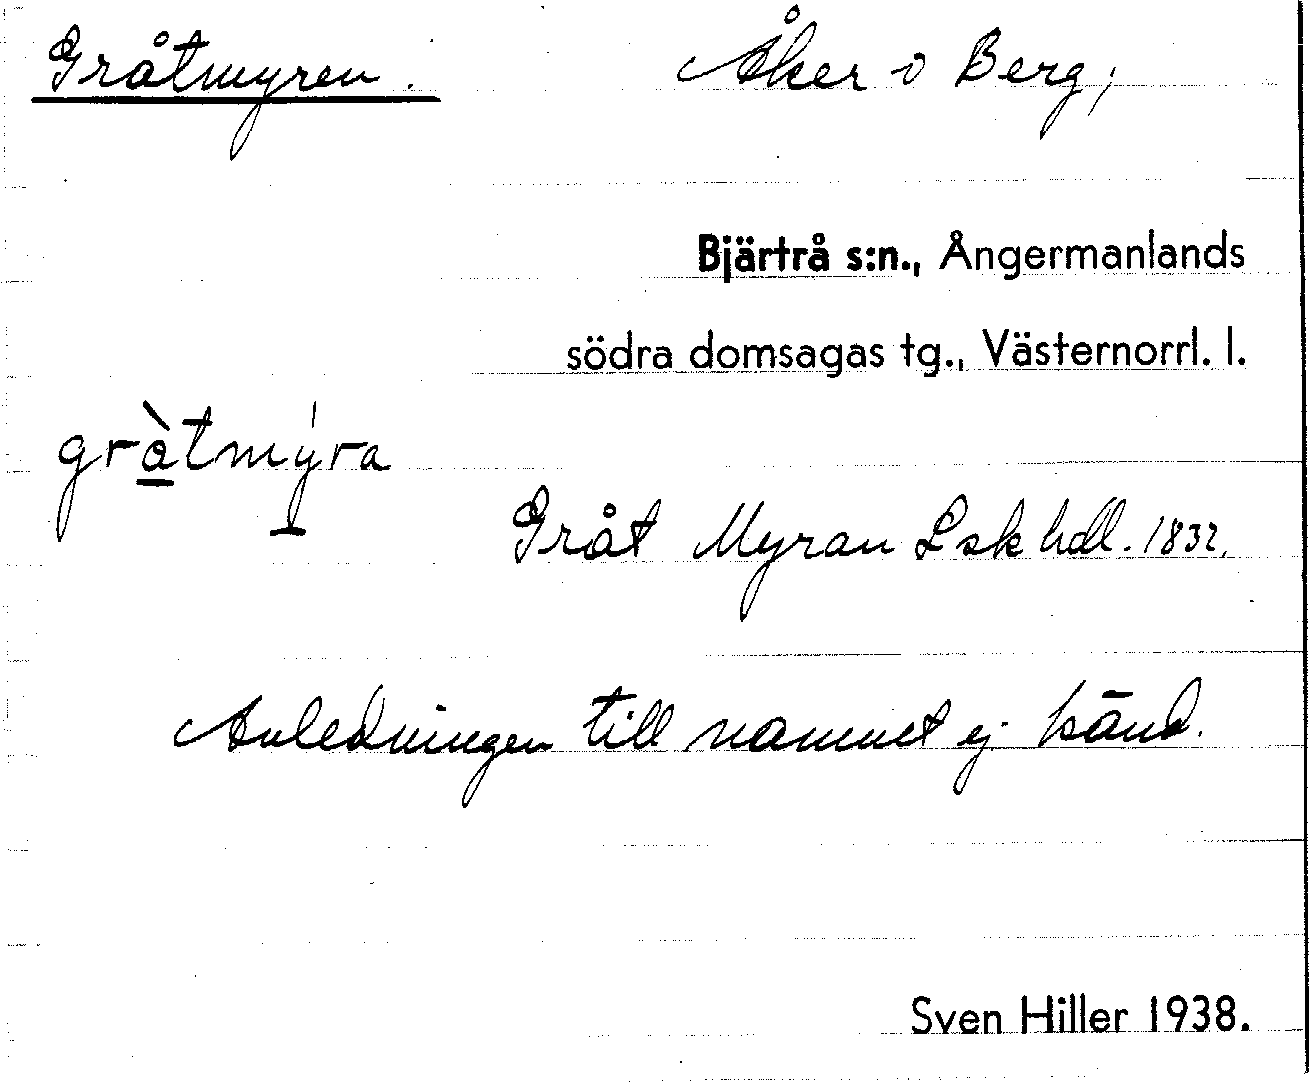 Gråtmyren. Åker v Berg,
Bjärtrå s:n., Ångermanlands
södra domsagas tg., Västernorrl. l.
gràtmy̍ra
Gråt Myran Lskhdl. 1832.
Avledningen till namnet ej känd.
Sven Hiller 1938.